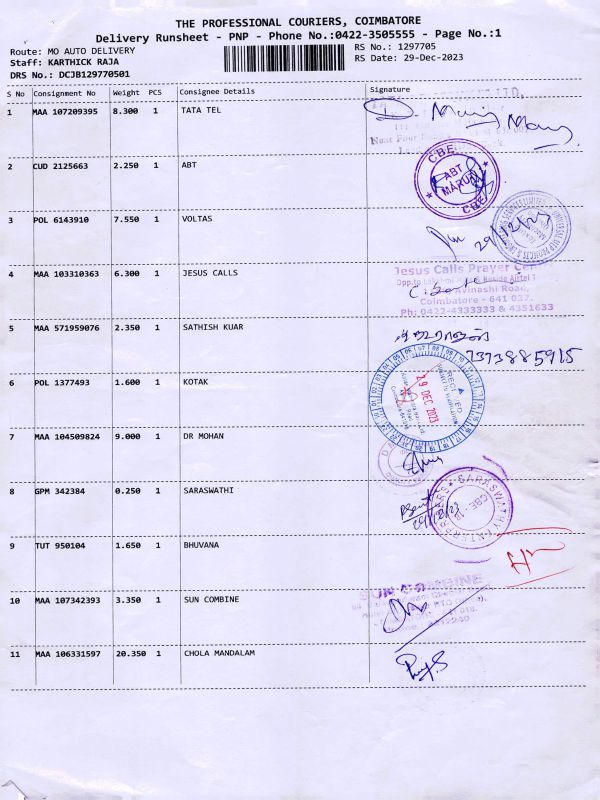 THE PROFESSIONAL COURIERS, COIMBATORE
Delivery Runsheet - PNP - Phone No.:0422-3505555 - Page No.:1
Route: MO AUTO DELIVERY
RS No.: 1297705
Staff: KARTHICK RAJA
RS Date: 29-Dec-2023
DRS No.: DCJB129770501
S No Consignment No Weight PCS Consignee Details Signature
1 MAA 107209395 8.300 1 TATA TEL
2 CUD 2125663 2.250 1 ABT
CBE
ABT
MARUTI
CBE
3 POL 6143910 7.550 1 VOLTAS
29/12/23
4 MAA 103310363 6.300 1 JESUS CALLS
Jesus Calls Prayer
Avinashi Road,
Coimbatore - 641 037.
Ph: 0422-4333333 & 4351633
5 MAA 571959076 2.350 1 SATHISH KUAR
7373885915
6 POL 1377493 1.600 1 KOTAK
RECEIVED
29 DEC 2023
7 MAA 104509824 9.000 1 DR MOHAN
8 GPM 342384 0.250 1 SARASWATHI
SARASWATHY ENTERPRISERS
CBE-18
29/12/23
9 TUT 950104 1.650 1 BHUVANA
10 MAA 107342393 3.350 1 SUN COMBINE
SUN COMBINE
11 MAA 106331597 20.350 1 CHOLA MANDALAM